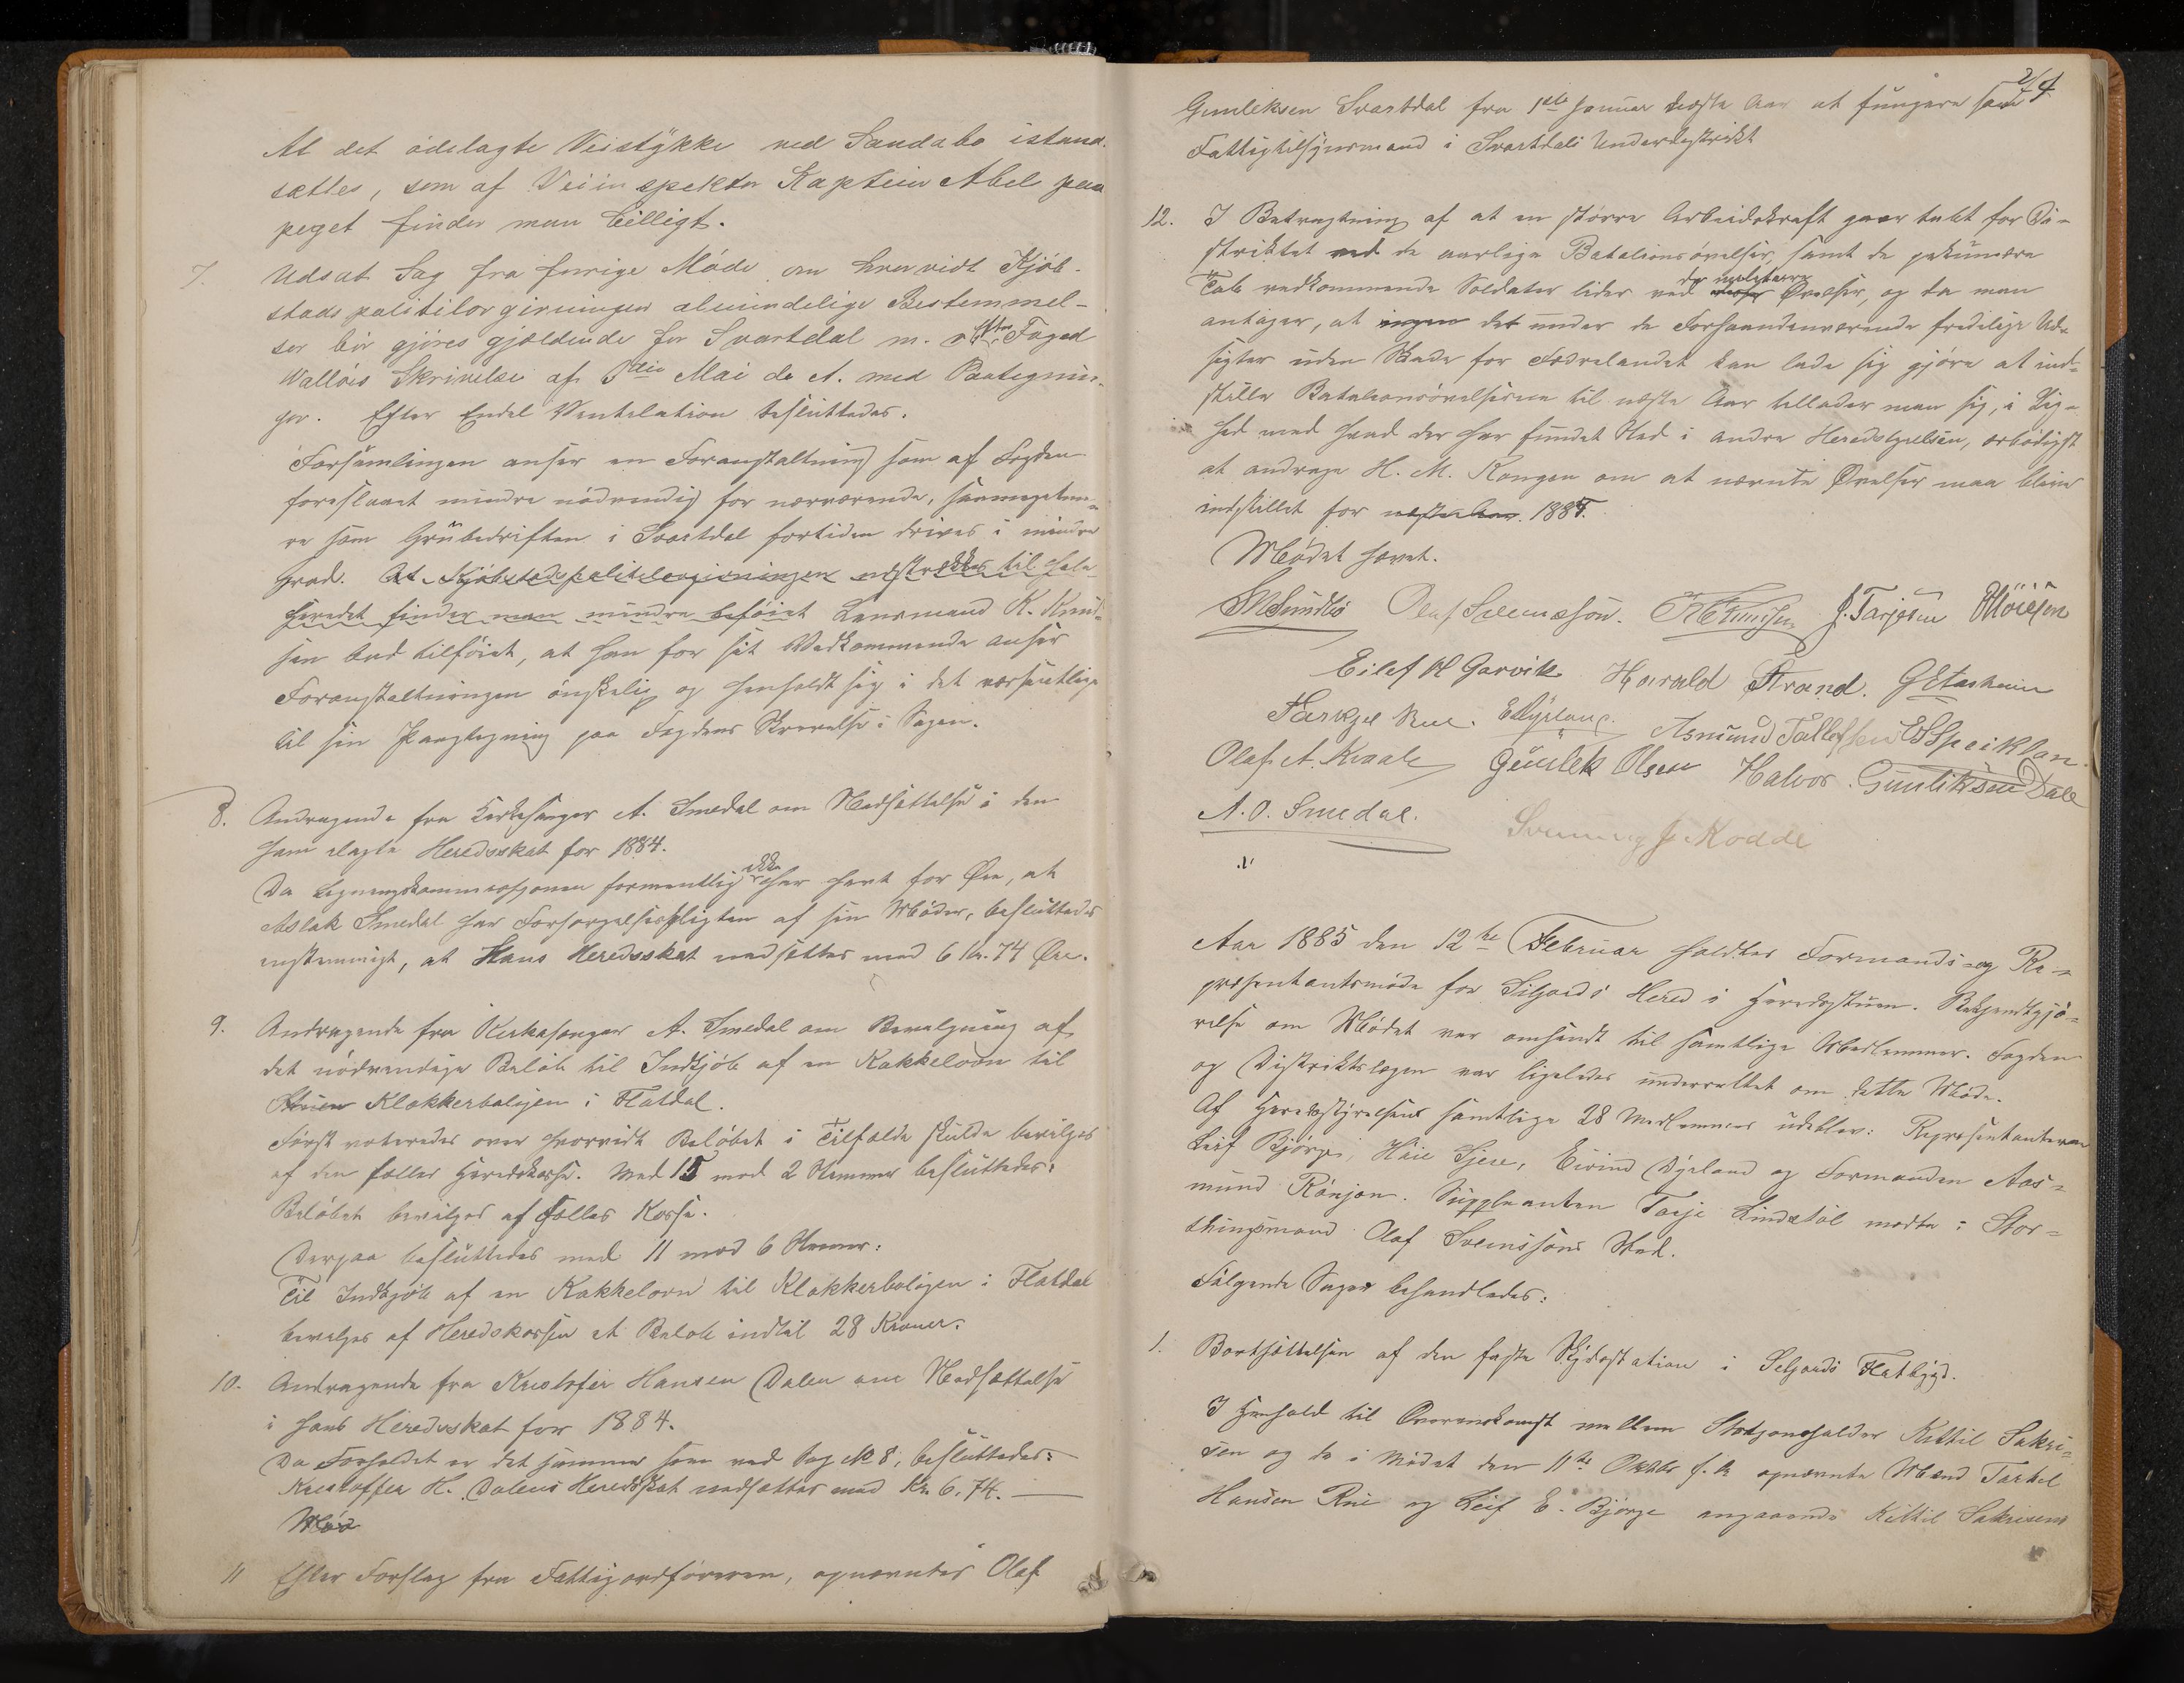 At det ödelagte Veistÿkke ved Sandabo istand-
sættes, som af Veiinspektör Kaptein Abel paa
peget finder man billigt.
7. Udsat Sag fra forrige Möde om hvorvidt Kjöb-
stads politilovgivningens almindelige Bestemmel-
ser bör gjöres gjældende for Svartdal m. v. Foged
Wallöes Skrivelse af Mai d. A. med Paategnin-
ger. Efter Endel Ventelation besluttedes.
Forsamlingen anser en Foranstaltning som af Fogden
foreslaaet mindre nödvendig for nærværende, saameget me-
re som Grubedriften i Svartdal fortiden drives i mindre
Grad. At Kjöbstadspolitilovgivningen udstrækkes til hele
Heredet finder man mindre beföiet Lensmand K. Knud-
sen bad tilföiet, at han for sit Vedkommende anser
Foranstaltningen önskelig og henholdt sig i det væsentlige
til sin Paategning paa Fogdens Skrivelse i Sagen.
8. Andragende fra Kirkesanger A. Smedal om Nedsættelse i den
ham ilagte Heredsskat for 1884.
Da Ligningskommissionen formentlig ikke har havt for Öie, at
Aslak Smedal har Forsörgelsespligten af sin Moder, besluttedes
enstemmigt, at Hans Heredsskat nedsættes med 6 Kr. 74 Öre.
9. Andragende fra Kirkesanger A. Smedal om Bevilgning af
det nödvendige Belöb til Indkjöb af en Kakkelovn til
Stuen Klokkerboligen i Flatdal.
Först voteredes over hvorvidt Belöbet i Tilfælde skulde bevilges
af den fælles Heredskasse. Med 15 mod 2 Stemmer besluttedes:
Belöbet bevilges af fælles Kasse.
Derpaa besluttedes med 11 mod 6 Stemmer:
Til Indkjöb af en Kakkelovn til Klokkerboligen i Flatdal
bevilges af Heredskassen et Belöb indtil 28 Kroner.
10. Andragende fra Kristofer Hansen Dalen om Nedsættelse
i hans Heredsskat for 1884.
Da Forholdet er det samme som ved Sag No 8, besluttedes:
Kristoffer H. Dalens Heredsskat nedsættes med Kr. 6,74.
Möd
11 Efter Forslag fra Fattigordföreren, opnævntes Olaf
74
Gunleksen Svartdal fra 1ste Januar næste Aar at fungere som
Fattigtilsÿnsmand i Svartdals Underdistrikt
12. I Betragtning af at en större Arbeidskraft gaar tabt for Di-
striktet ved de aarlige Batalionsövelser, samt de pekuniære
Tab vedkommende Soldater lider ved de militære disse Övelser, og da man
antager, at ingen det under de forhaandenværende fredelige Ud-
sigter uden Skade for Fædrelandet kan lade sig gjöre at ind-
stille Batalionsövelserne til næste Aar tillader man sig, i Lig-
hed med hvad der har fundet Sted i andre Heredstyrelser, ærbödigst
at andrage H. M. Kongen om at nævnte Övelser maa blive
indstillet for næste Aar. 1885.
Mödet hævet.
Olaf Sveinsson. J. Tarjesen
Eilef H Garvik Harald Strand.
Tarkjel Rue. Asmund Tallefsen
Olaf A. Kraale Gunlek Olsen Halvor Gunliksen Dale
A. O. Smedal. Svenning J. Kodde
Aar 1885 den 12te Februar holdtes Formands- og Re-
præsentantsmöde for Siljords Hered i Heredsstuen. Bekjendtgjö-
relse om Mödet var omsendt til samtlige Medlemmer. Fogden
og Distriktslægen var ligeledes underrettet om dette Möde.
Af Heredsstÿrelsens samtlige 28 Medlemmer udeblev: Repræsentanterne
Leif Bjørge, Eivind Dÿrland og Formanden Aas-
mund Rönjon. Suppleanten Tarje Lindstöl mödte i Stor-
thingsmand Olaf Sveinssons Sted.
Fölgende Sager behandledes:
1. Bortsættelsen af den faste Skydsstation i Seljords Flatbÿgd.
I Henhold til Overenskomst mellem Stasjonsholder Kittil Sakri-
sen og de i Mödet den 11te Oktbr f. A. opnævnte Mænd Tarkel
Hansen Rui og Leif E. Bjørge angaaende Kittil Sakrisens